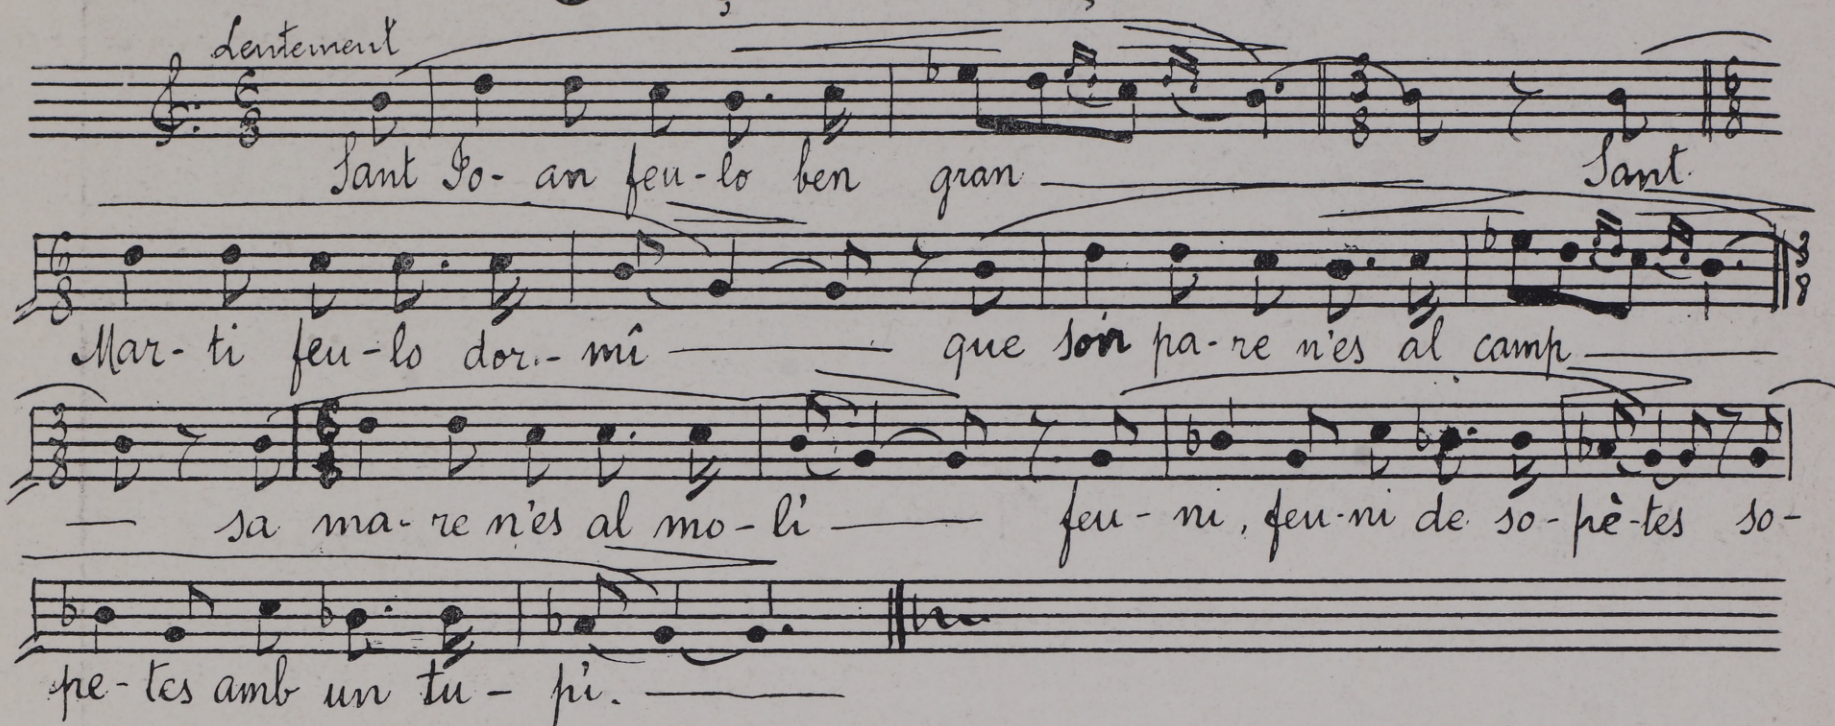 Lentement
Sant Jo- an feu-lo ben gran Sant
Mar-ti feu-lo dor-mî que son pa-re n'es al camp
sa ma-re n'es al mo-li feu-ni, feu-ni de so-pè-tes so-
pe-tes amb un tu-pi.